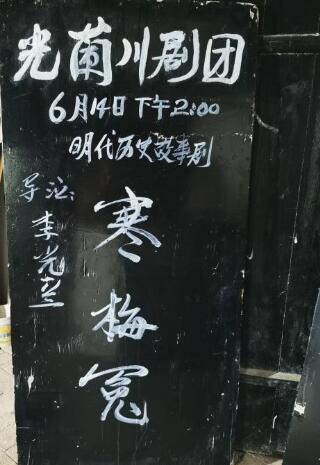 光蘭川剧团
6月14日下午2:00
明代历史故事剧
导演:
李光兰
寒梅冤